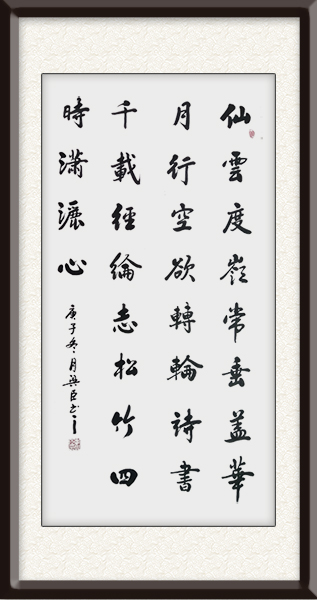 仙雲度嶺常垂蓋華
月行空欲轉輪詩書
千載經綸志松竹四
時瀟灑心
庚子冬月興臣書